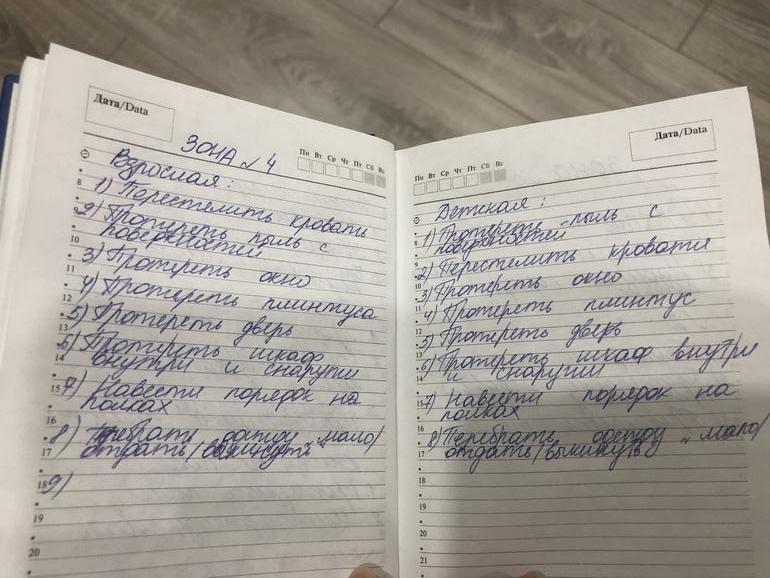 Дата/Data
ЗОНА № 4
Пн Вт Ср Чт Пт Сб Вс
Взрослая:
8 1) Перестелить кровать
9 2) Протереть пыль с
поверхностей
10
3) Протереть окно
11
4) Протереть плинтуса
12
5) Протереть дверь
13
6) Протереть шкаф
14 внутри и снаружи
15 7) Навести порядок на
полках
16
8) Перебрать одежду „мало/
17 отдать/выкинуть"
18 9)
19
20
Дата/Data
Пн Вт Ср Чт Пт Сб Вс
Детская:
8 1) Протереть пыль с
поверхностей
9 2) Перестелить кровати
10
3) Протереть окно
11
4) Протереть плинтус
12
5) Протереть дверь
13
6) Протереть шкаф внутри
14 и снаружи
15 7) Навести порядок на
полках
16
8) Перебрать одежду „мало/
17 отдать/выкинуть"
18
19
20
21